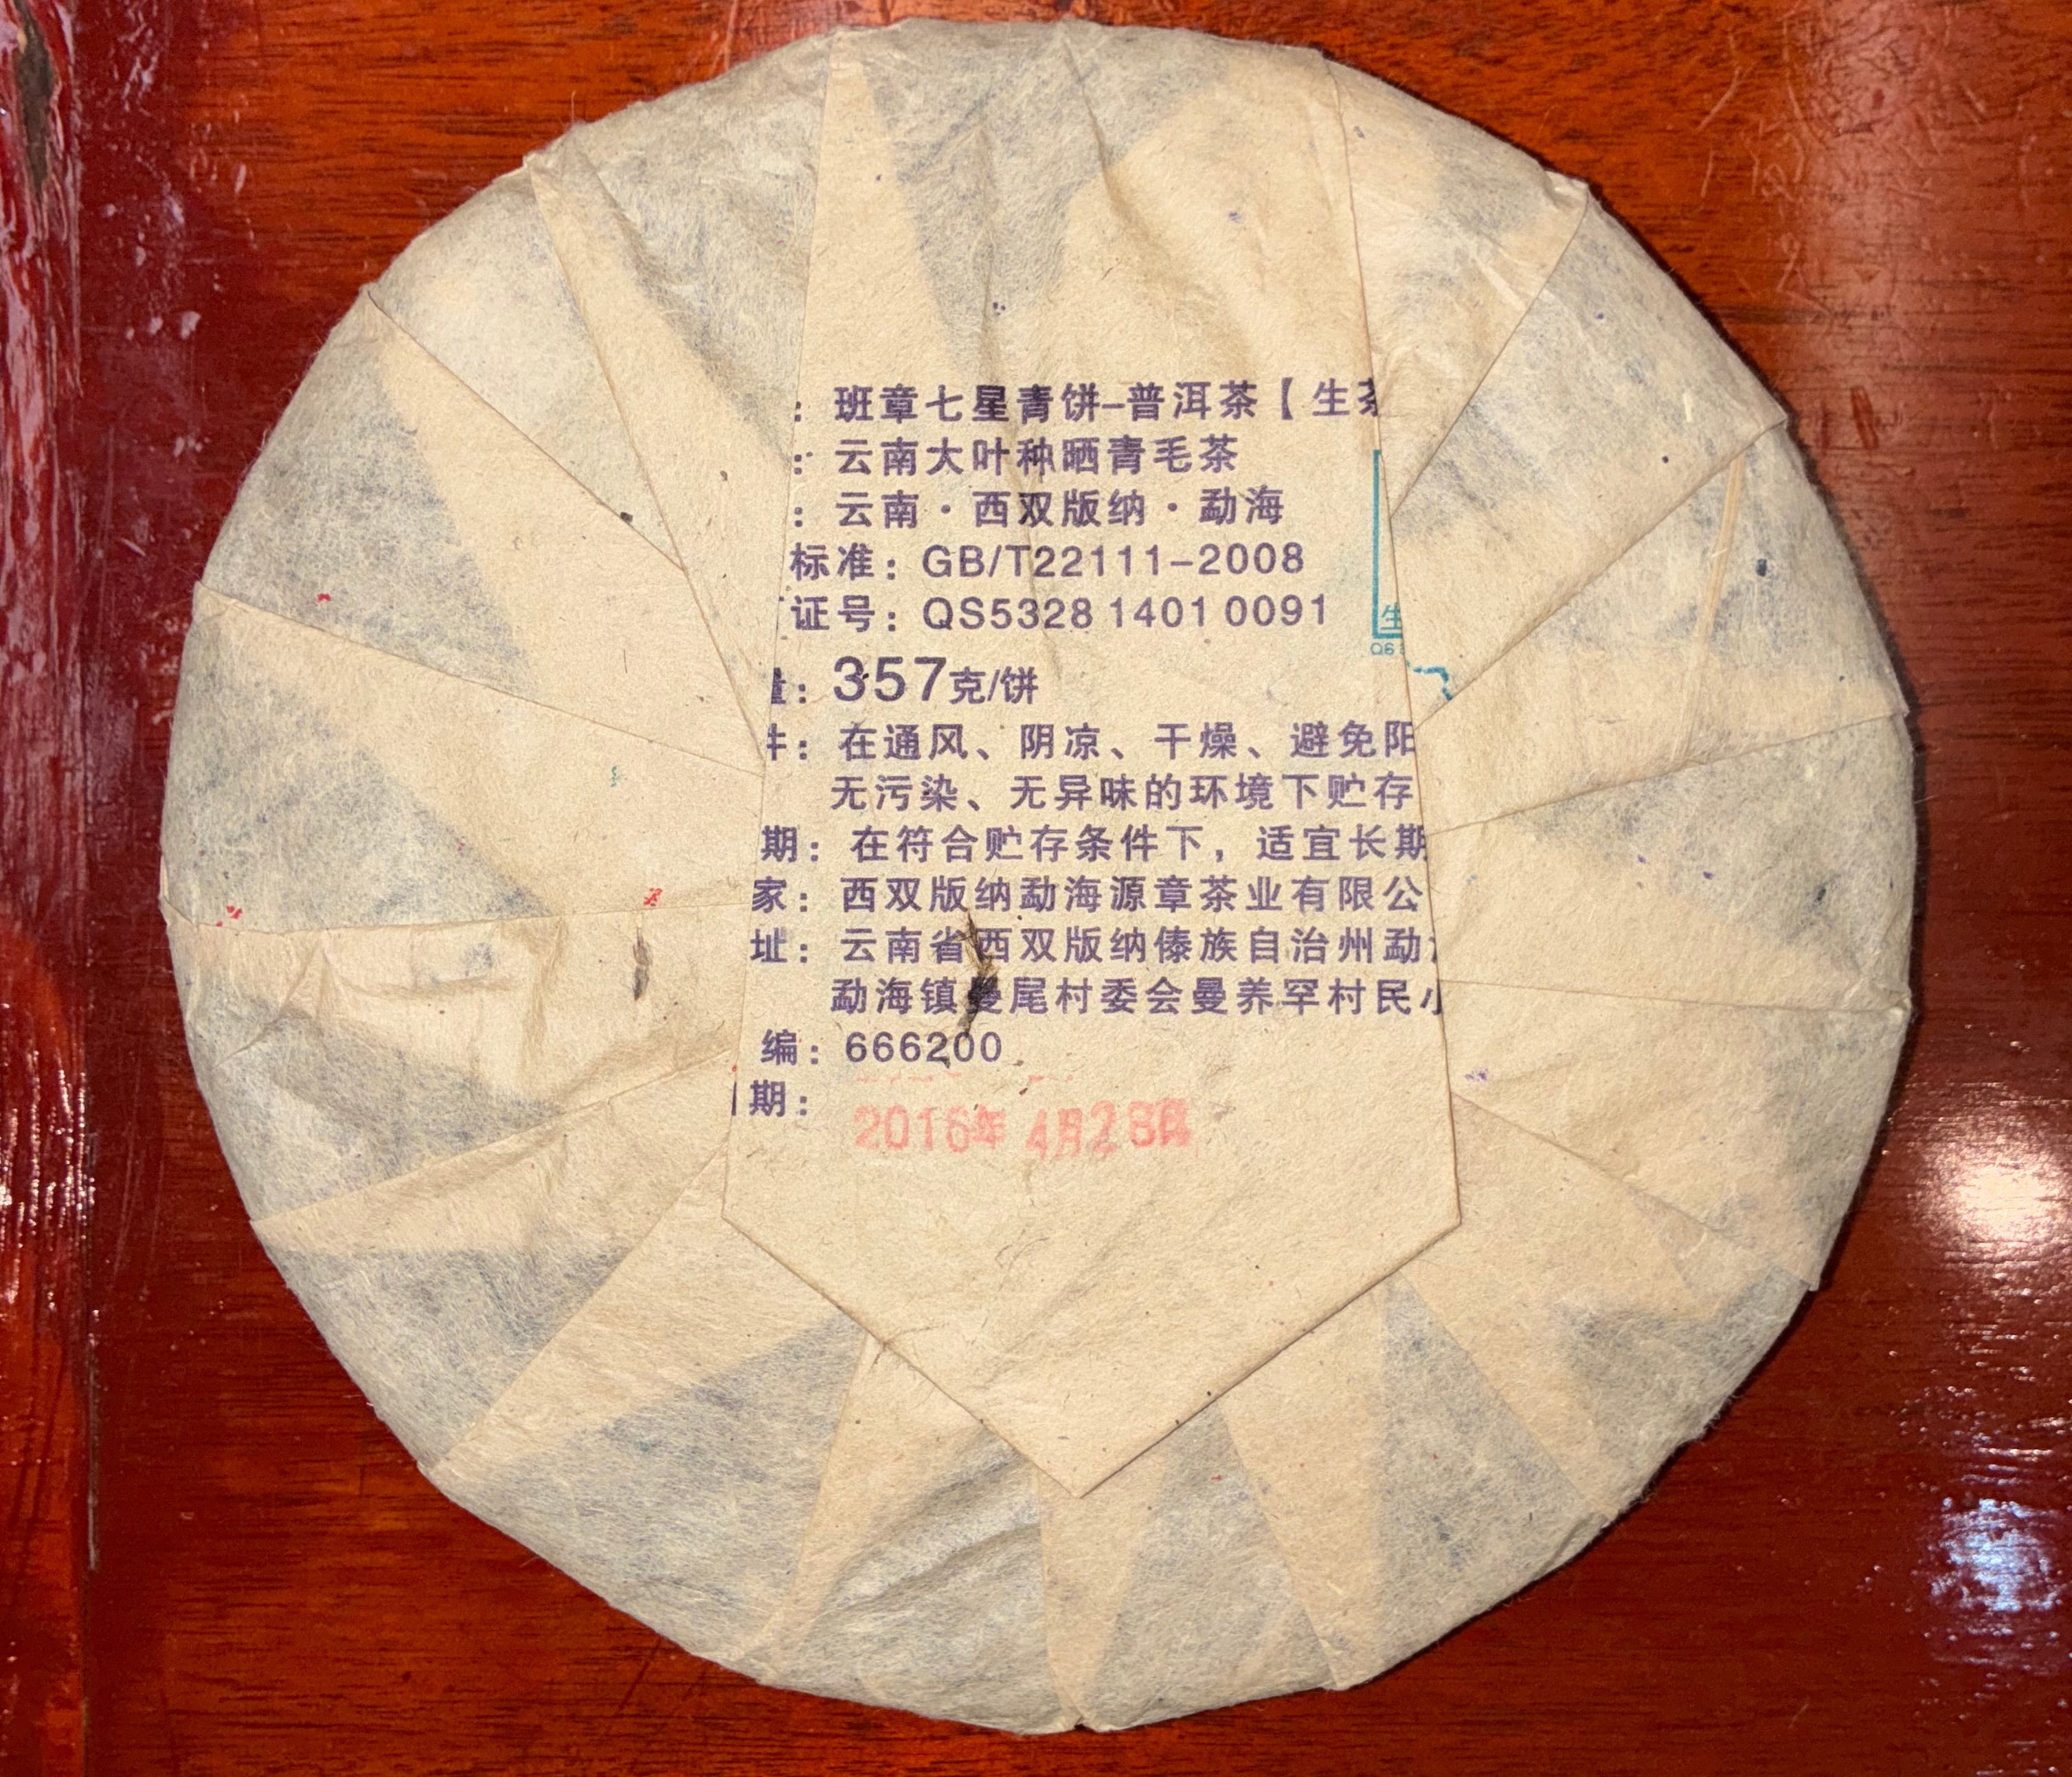 ：班章七星青饼–普洱茶【生茶
：云南大叶种晒青毛茶
：云南·西双版纳·勐海
标准：GB/T22111–2008
证号：QS5328 1401 0091
量：357克/饼
件：在通风、阴凉、干燥、避免阳
无污染、无异味的环境下贮存
期：在符合贮存条件下，适宜长期
家：西双版纳勐海源章茶业有限公
址：云南省西双版纳傣族自治州勐
勐海镇曼尾村委会曼养罕村民小
编：666200
期：
2016年 4月28日
生